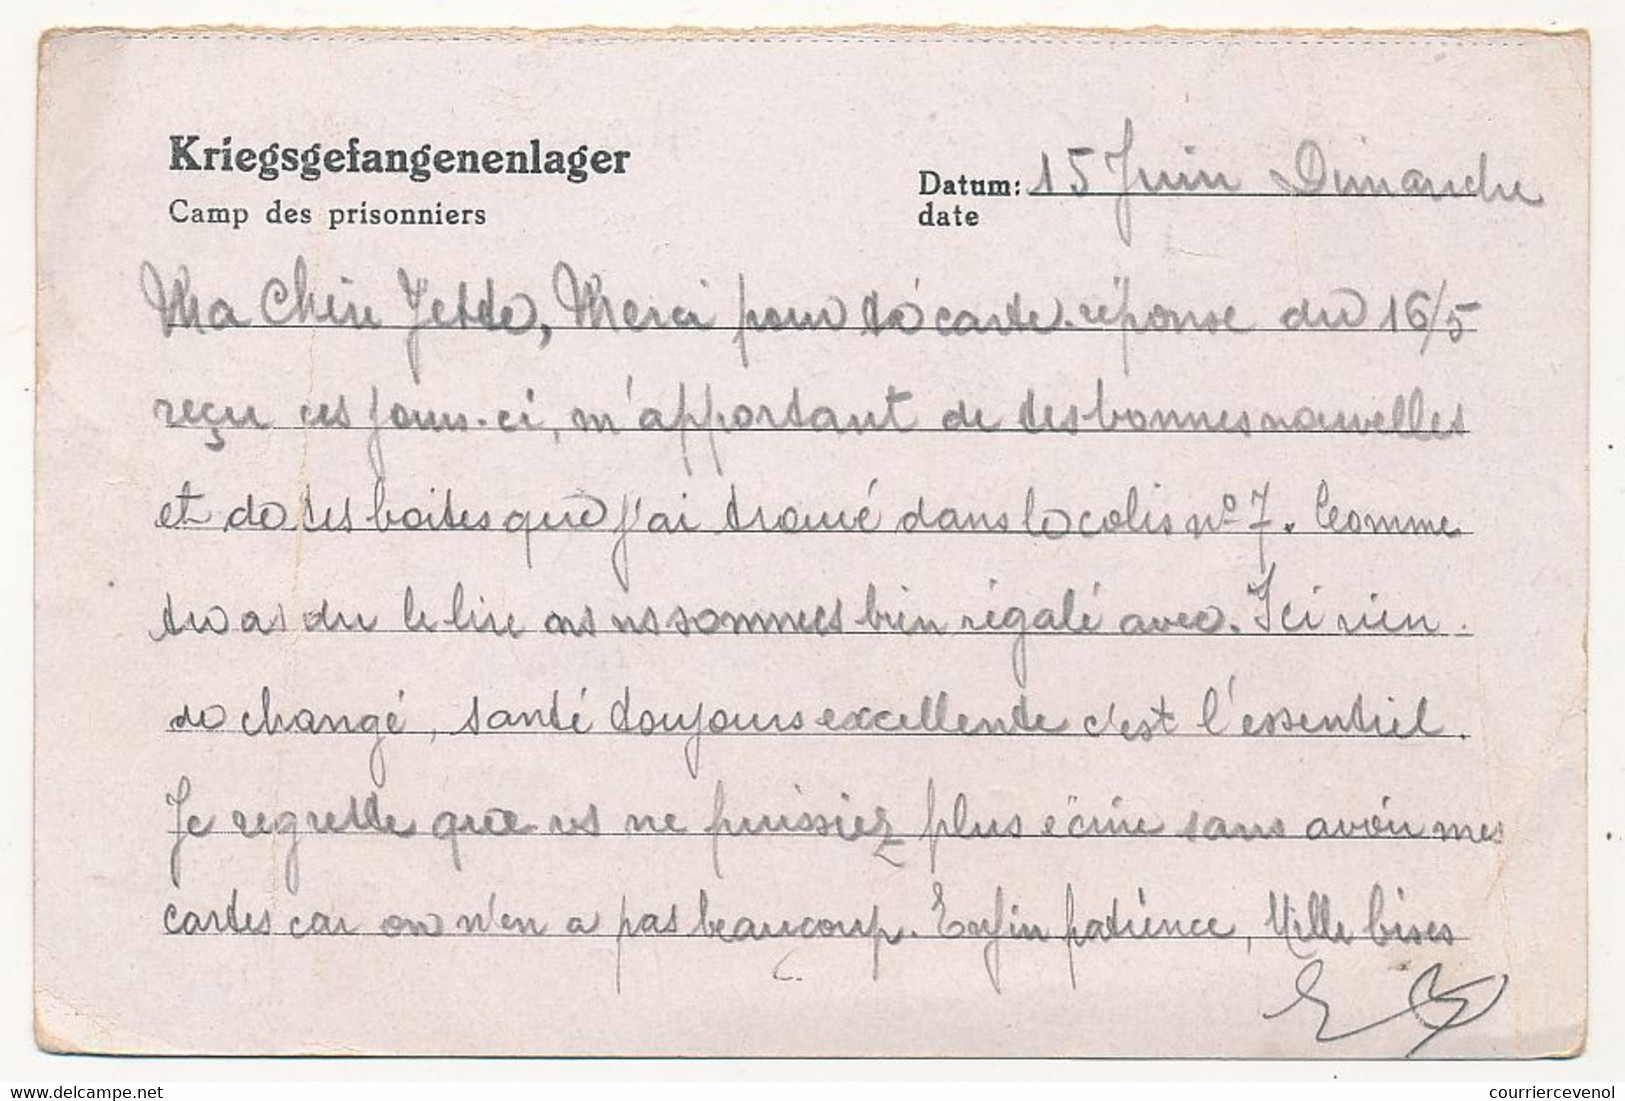 Kriegsgefangenenlager
Camp des prisonniers
Datum: 15 Juin Dimanche
date
Ma Chère Jette, Merci pour ta carte-réponse du 16/5
reçu ces jours-ci, m'apportant de tes bonnes nouvelles
et de tes boites que j'ai trouvé dans le colis nº 7. Comme
tu as du le lire ns sommes bien régalé avec. Ici rien
de changé, santé toujours excellente c'est l'essentiel.
Je regrette que vs ne puissiez plus écrire sans avoir mes
cartes car on n'en a pas beaucoup. Enfin patience, Mille bises
www.delcampe.net
courriercevenol